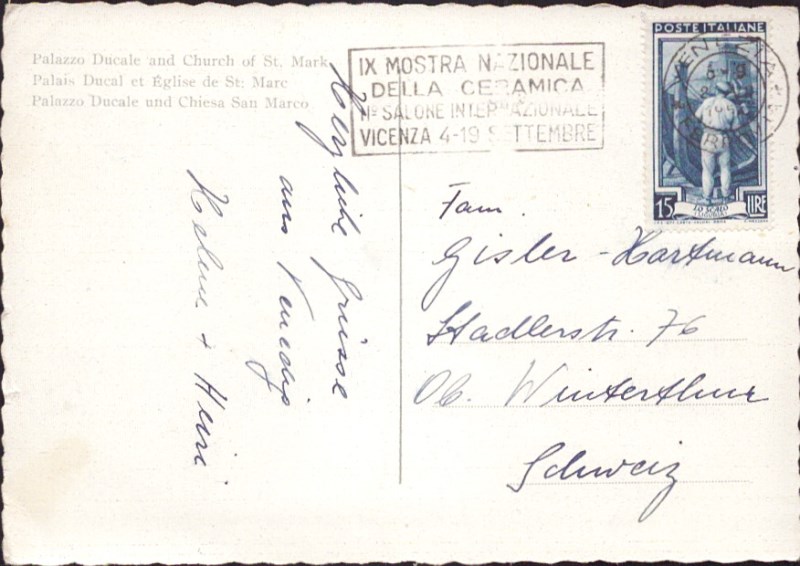 Palazzo Ducale and Church of St. Mark
Palais Ducal et Église de St: Marc
Palazzo Ducale und Chiesa San Marco
IX MOSTRA NAZIONALE
DELLA CERAMICA
IIº SALONE INTERNAZIONALE
VICENZA 4-19 SETTEMBRE
POSTE ITALIANE
VENEZIA
FERR
15 LIRE
LO SCALO
Herzliche Grüsse
aus Venedig
Helene + Heiri
Fam.
Gisler - Hartmann
Stadlerstr. 76
Ob. Winterthur
Schweiz